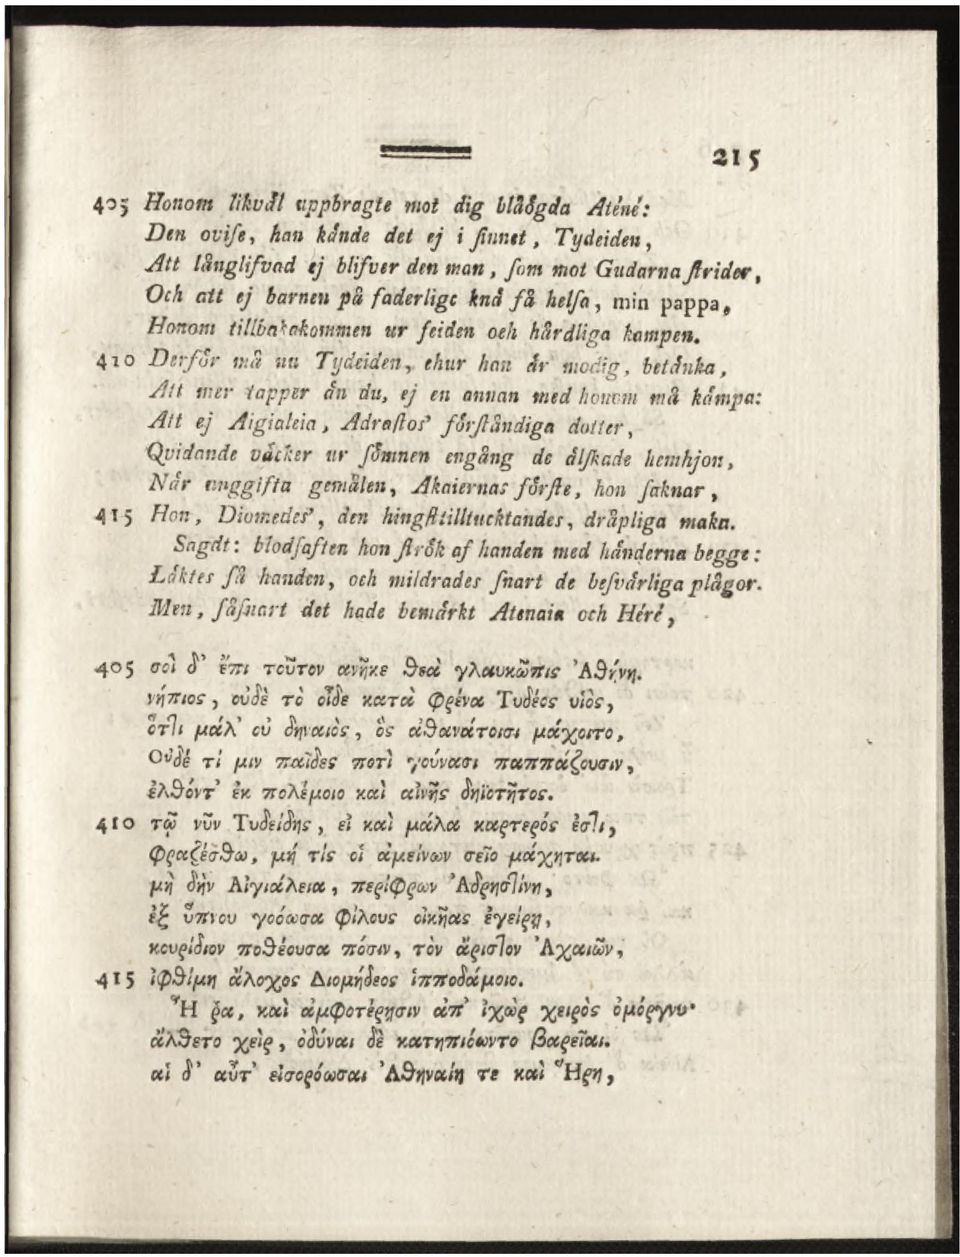 215
405 Honom likvål uppbragte mot dig blåögda Aténé:
Den oviſe, han kånde det ej i ſinnet, Tydeiden,
Att långlifvad ej blifver den man, ſom mot Gudarna ſtrider,
Och att ej barnen på faderlige knå få helſa, min pappa,
Honom tillbakakommen ur feiden och hårdliga kampen.
410 Derfôr må nu Tydeiden, ehur han år modig, betånka,
Att mer tapper ån du, ej en annan med honom må kåmpa:
Att ej Aigialeia, Adraſtos' fôrſtåndiga dotter,
Qvidande våcker ur ſômnen engång de ålſkade hemhjon,
Når unggifta gemålen, Akaiernas fôrſte, hon ſaknar,
415 Hon, Diomedes', den hingſttilltucktandes, dråpliga maka.
Sagdt: blodſaften hon ſtrôk af handen med hånderna begge:
Låktes få handen, och mildrades ſnart de beſvårliga plågor.
Men, ſåſnart det hade bemårkt Atenaia och Héré,
405 σοὶ δ' ἔπι τοῦτον ἀνῆκε θεὰ γλαυκῶπις Ἀθήνη.
νήπιος, οὐδὲ τὸ οἶδε κατὰ φρένα Τυδέος υἱὸς,
ὅτι μάλ' οὐ δηναιὸς, ὃς ἀθανάτοισι μάχοιτο,
Οὐδέ τί μιν παῖδες ποτὶ γούνασι παππάζουσιν,
ἐλθόντ' ἐκ πολέμοιο καὶ αἰνῆς δηϊοτῆτος.
410 τῷ νῦν Τυδείδης, εἰ καὶ μάλα καρτερός ἐστι,
φραζέσθω, μή τίς οἱ ἀμείνων σεῖο μάχηται.
μὴ δὴν Αἰγιάλεια, περίφρων Ἀδρηστίνη,
ἐξ ὕπνου γοόωσα φίλους οἰκῆας ἐγείρῃ,
κουρίδιον ποθέουσα πόσιν, τὸν ἄριστον Ἀχαιῶν,
415 ἰφθίμη ἄλοχος Διομήδεος ἱπποδάμοιο.
Ἦ ῥα, καὶ ἀμφοτέρῃσιν ἀπ' ἰχὼρ χειρὸς ὀμόργνυ·
ἄλθετο χεὶρ, ὀδύναι δὲ κατηπιόωντο βαρεῖαι.
αἱ δ' αὖτ' εἰσορόωσαι Ἀθηναίη τε καὶ Ἥρη,